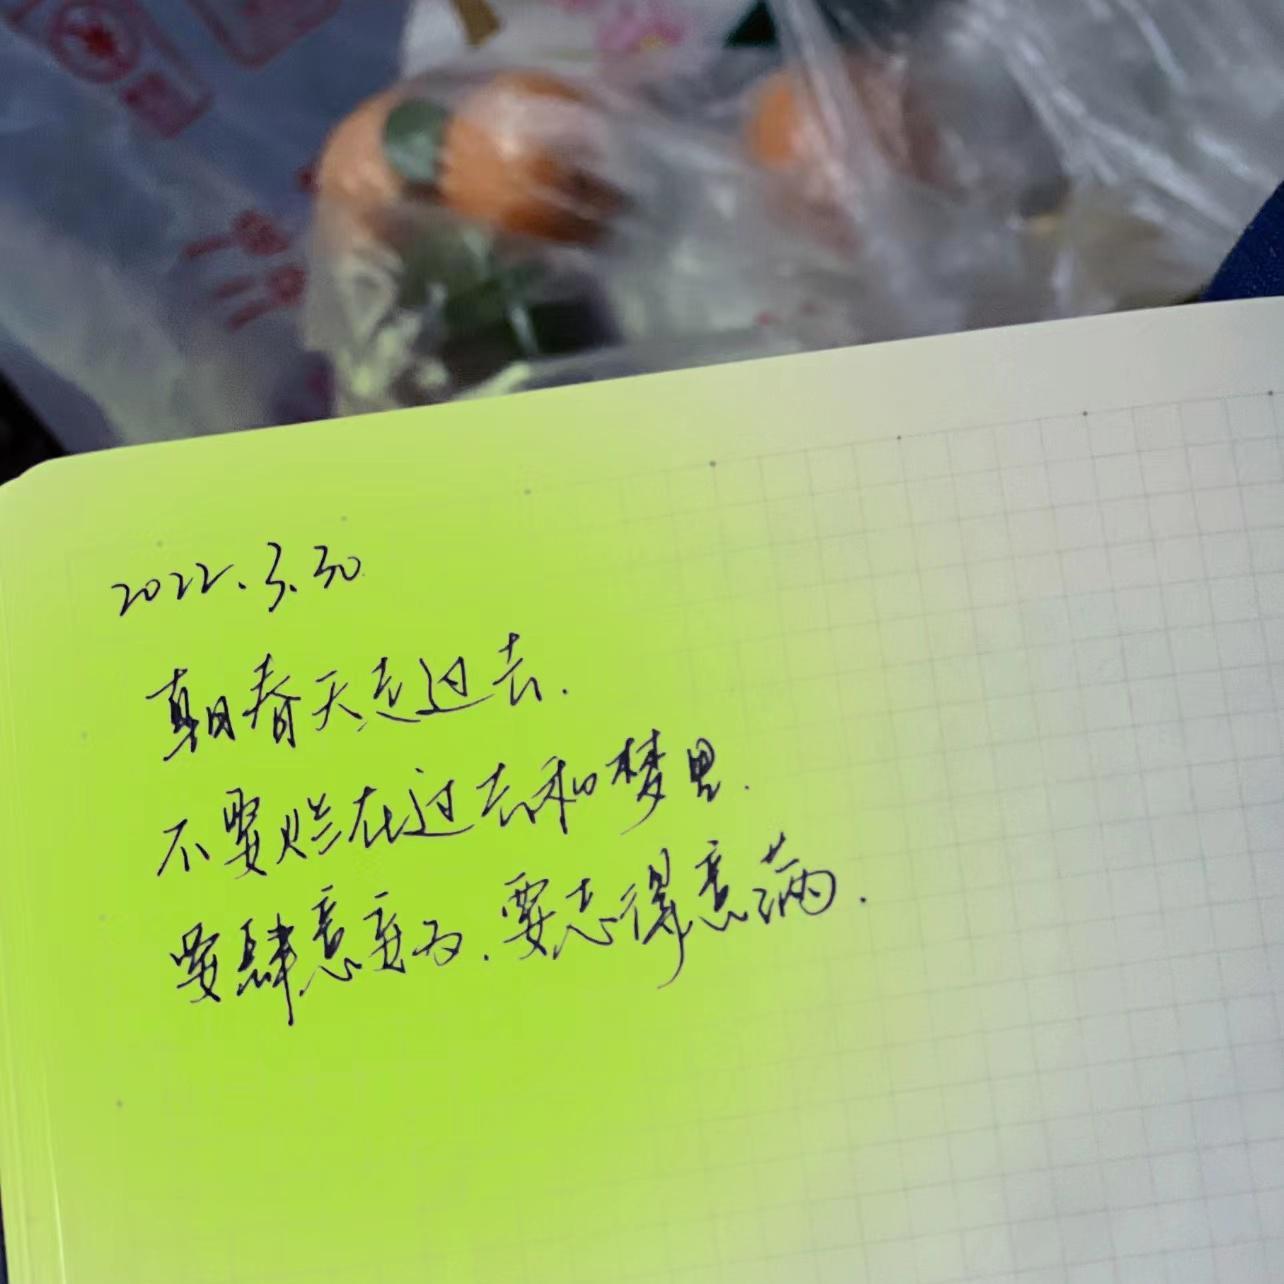 2022.3.30
朝春天走过去.
不要烂在过去和梦里.
要肆意变为.要志得意满.